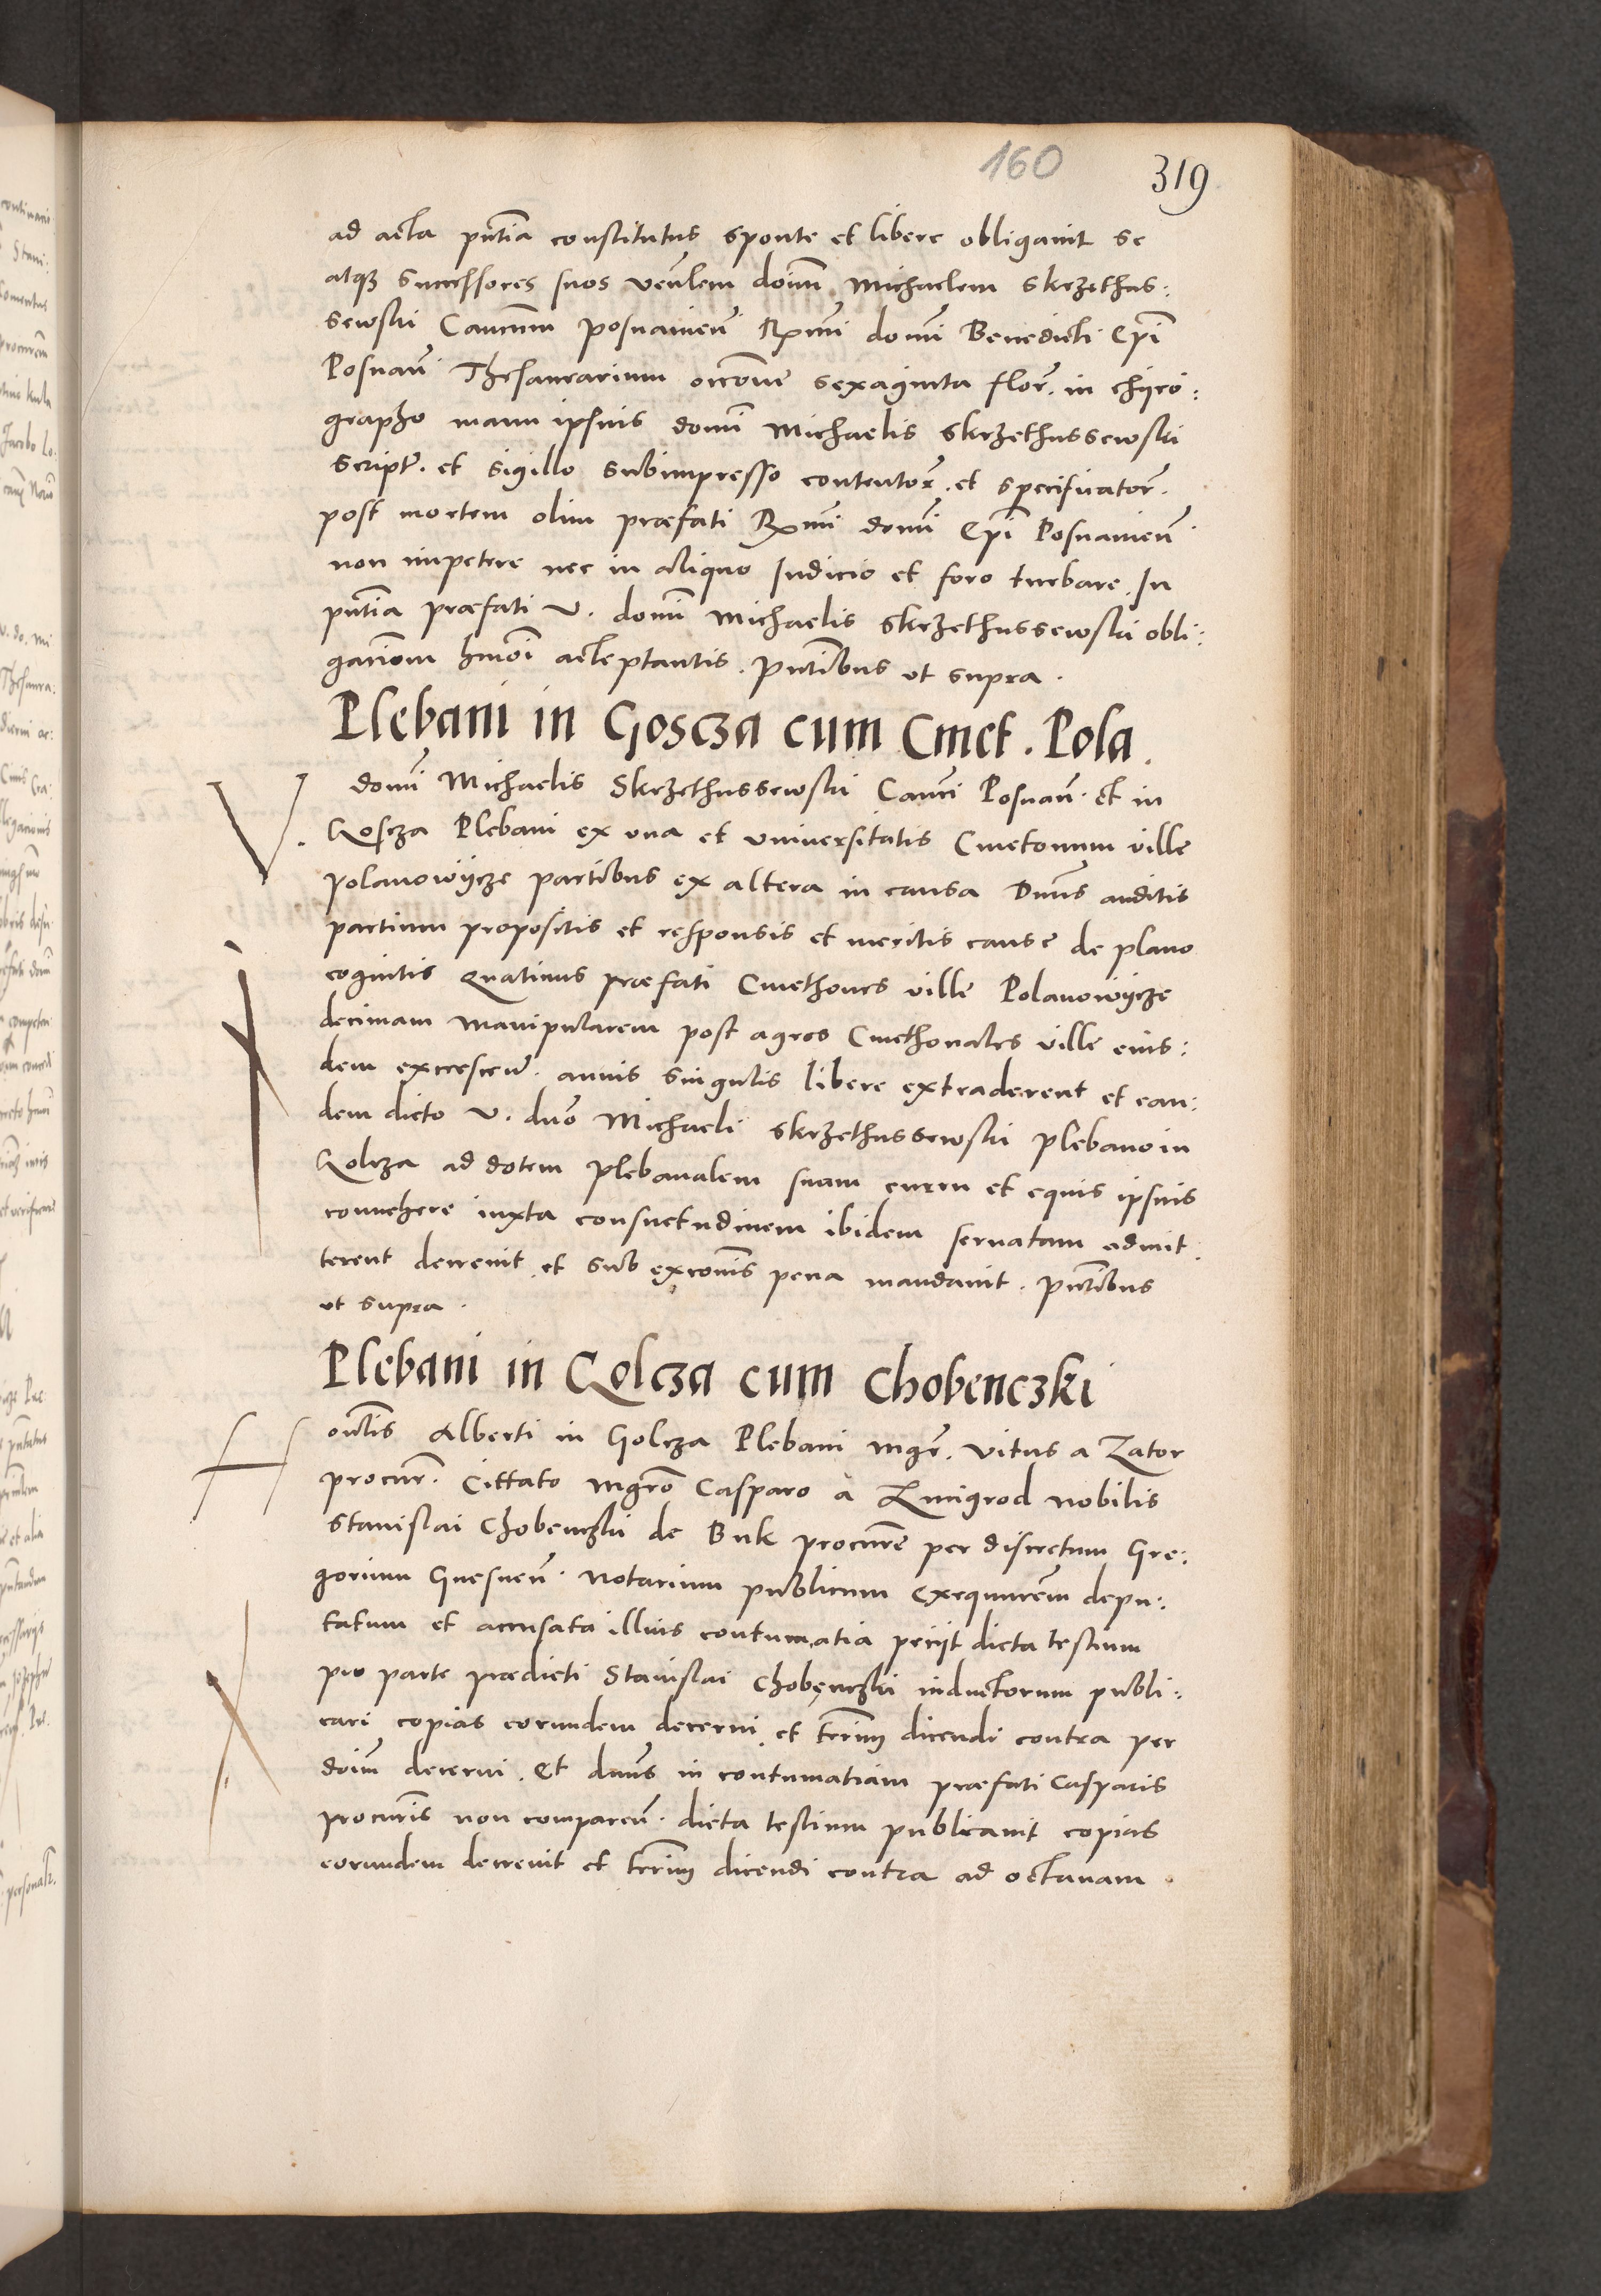 160
319
ad acta pntia constitutus sponte et libere obligauit se
atqз successores suos venlem doīum Michaelem Skrzethus:
sewski Canicum posnanien Rmi domī Benedicti Epi
Posnan Thesaurarium occōne sexaginta flor. in chyro:
grapho manu ipsius domī Michaelis Skrzethussewski
script. et sigillo subimpresso contentor. et specificator.
post mortem olim præfati Rmi domī Epi Posnanien
non impetere nec in aliquo Iudicio et foro turbare. In
pntia præfati V. domī Michaelis Skrzethussewski obli:
gationem hmōi acceptantis. Pntibus vt supra.
Plebani in Goscza cum Cmet. Pola.
V. domī Michaelis Skrzethussewski Canci Posnan. et in
Goscza Plebani ex vna et vniuersitatis Cmetonum ville
Polanowycze partibus ex altera in causa Dnus auditis
partium propositis et responsis et meritis cause de plano
cognitis Quatinus præfati Cmethones ville Polanowycze
decimam manipularem post agros Cmethonales ville eius:
dem excrescen. annis singulis libere extraderent et ean:
dem dicto V. dno Michaeli Skrzethussewski plebano in
Golcza ad dotem plebanalem suam curru et equis ipsius
conuehere iuxta consuetudinem ibidem seruatam admit:
terent decreuit et sub exconis pena mandauit. Pntibus
vt supra.
Plebani in Golcza cum Chobenczki
Honlis Alberti in Golcza Plebani mgr. Vitus a Zator
procur. Cittato mgro Casparo a Zmigrod nobilis
Stanislai Chobenczki de Buk procure per discretum Gre:
gorium Gnesnen. Notarium publicum exequutem depu:
tatum et accusata illius contumatia petijt dicta testium
pro parte prædicti Stanislai Chobenczki inductorum publi:
cari copias eorundem decerni et trium dicendi contra per
doīm decerni. Et dnus in contumatiam præfati Casparis
procuris non comparen. dicta testium publicauit copias
eorundem decreuit et trium dicendi contra ad octauam